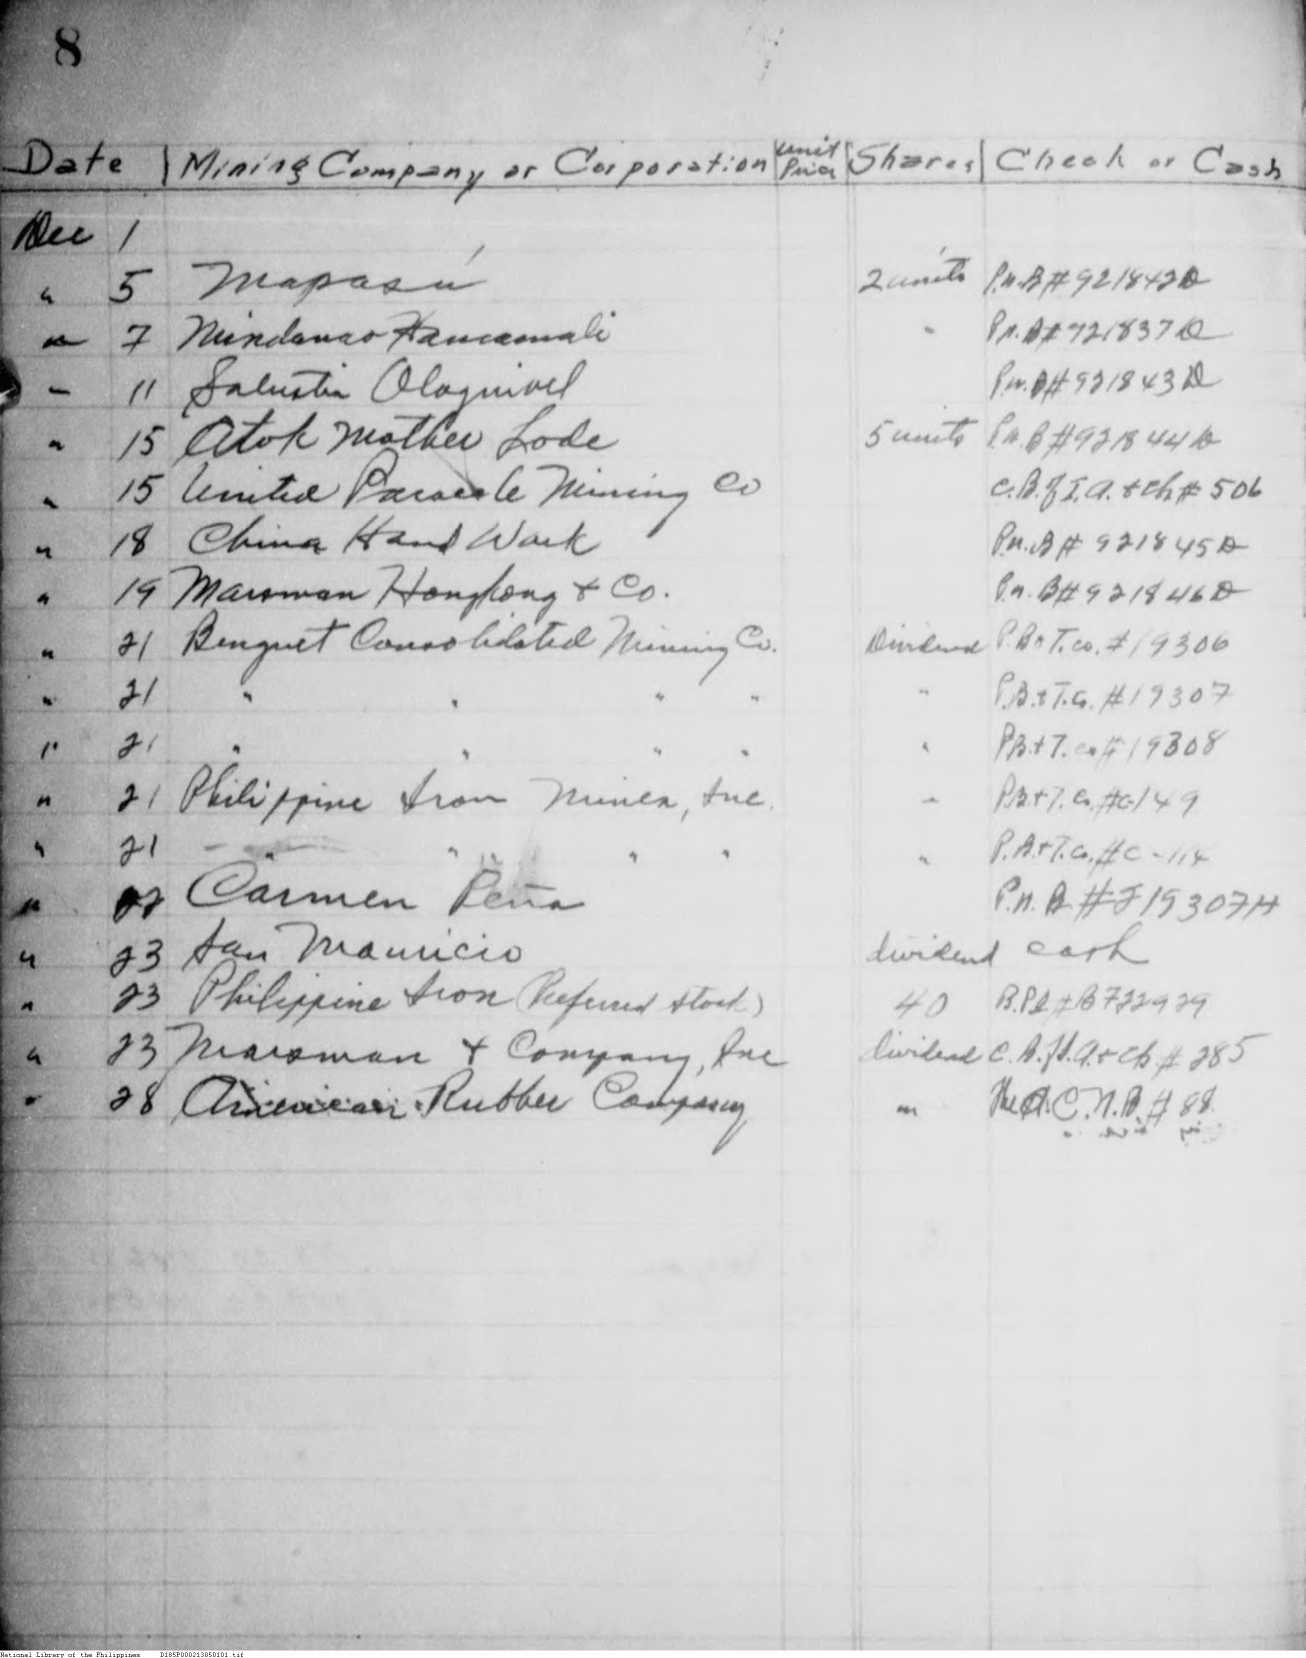 8
Date | Mining Company or Corporation | unit Price | Shares | Check or Cash
Dec 1
" 5 Mapasú 2 units P.N.B # 921842 D
" 7 Mindanao " P.N.B # 921837 D
- 11 Salustia P.N.B # 921843 D
" 15 Atok Mother Lode 5 units P.N.B # 921844 D
" 15 United Paracale Mining Co C.B. of I.A. & Ch # 506
" 18 China Hand Work P.N.B # 921845 D
" 19 Marsman Hongkong & Co. P.N.B # 921846 D
" 21 Benguet Consolidated Mining Co. Dividend P.B & T. Co. # 19306
" 21 " " " " " P.B. & T. Co. # 19307
" 21 " " " " " P.B & T. Co # 19308
" 21 Philippine Iron Mines, Inc. " P.B & T. Co. # C-149
" 21 " " " " " P.B. & T. Co. # C-114
" 22 Carmen Peña P.N.B. # 219307 H
" 23 San Mauricio dividend cash
" 23 Philippine Iron (Preferred Stock) 40 # B722929
" 23 Marsman & Company, Inc dividend C.B. of I.A. & Ch. # 285
" 28 American Rubber Company " The N.B # 88
National Library of the Philippines D185P000213050101.tif